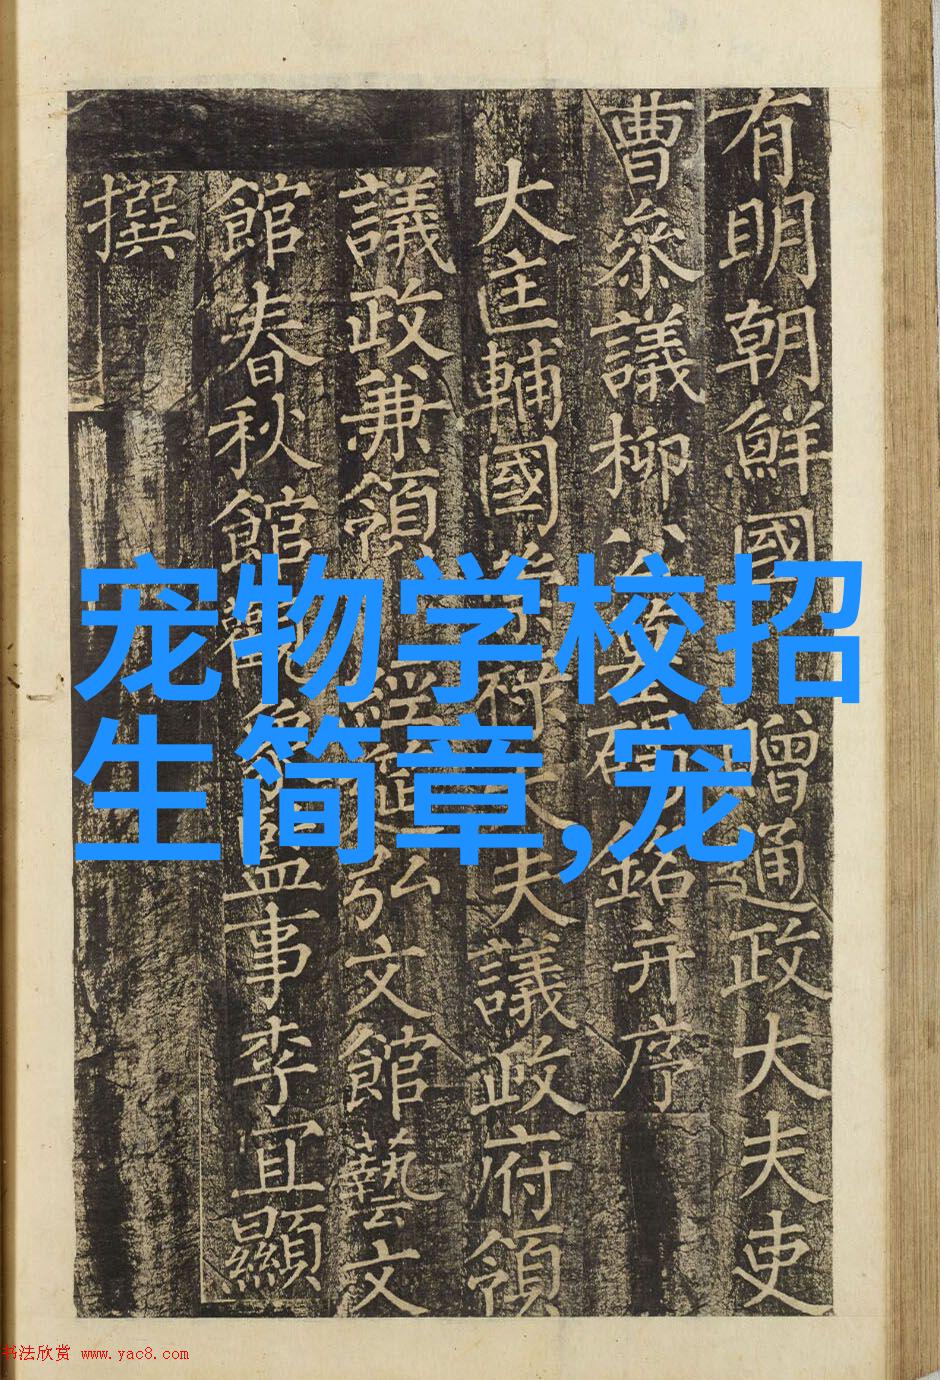 有明朝鮮國贈通政大夫吏
曹叅議柳公銘并序
大匡輔國崇祿大夫議政府領
議政兼領經筵弘文館藝文
館春秋館觀象監事李宜顯
撰
宠物学校招
生简章,宠
书法欣赏 www.yac8.com